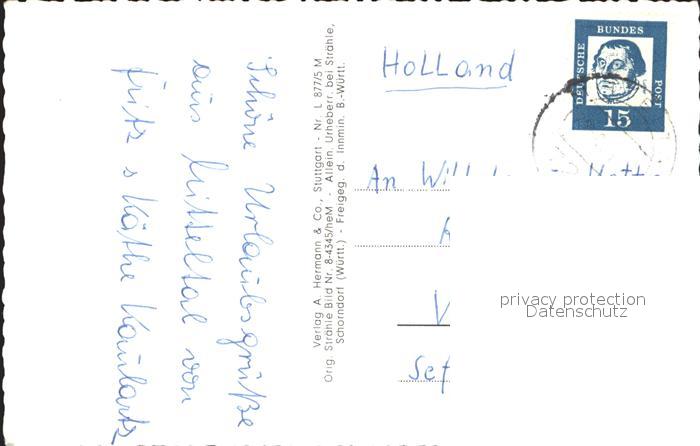 Schöne Urlaubsgrüße
aus Mitteltal von
Fritz & Käthe Kaulartz
Verlag A. Hermann & Co., Stuttgart - Nr. L 877/5 M
Orig. Strähle Bild Nr. 8-4345/heM - Allein. Urheberr. bei Strähle,
Schorndorf (Württ.) - Freigeg. d. Innmin. B.-Württ.
HOLLAND
DEUTSCHE
BUNDES
POST
15
An
privacy protection
Datenschutz